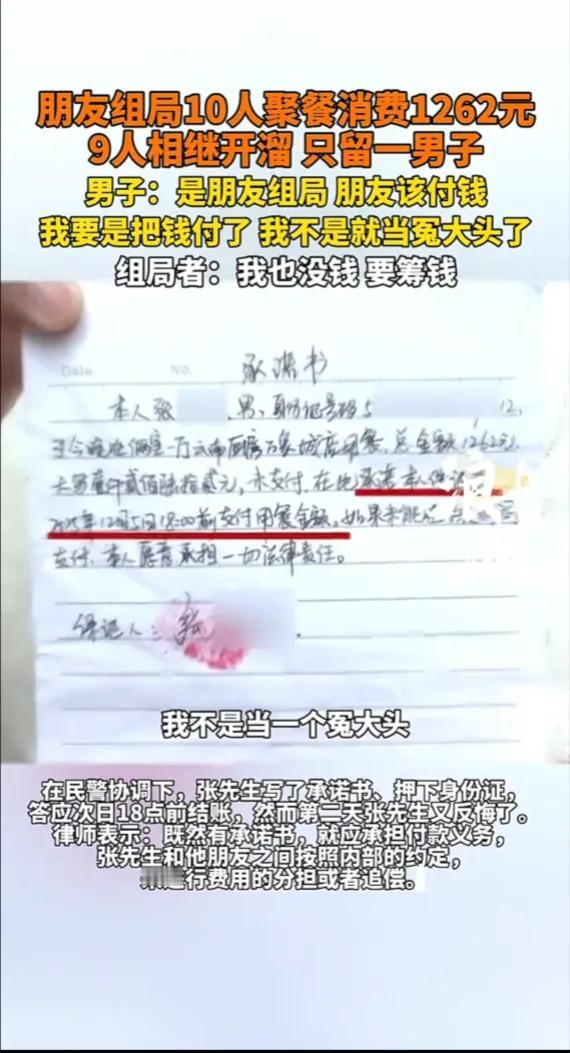 朋友组局10人聚餐消费1262元
9人相继开溜 只留一男子
男子：是朋友组局 朋友该付钱
我要是把钱付了 我不是就当冤大头了
组局者：我也没钱 要筹钱
Date No.
承诺书
本人张 男、身份证号码5 12,
于今晚在 云南 万象城店用餐，总金额1262元，
大写壹仟贰佰陆拾贰元，未支付，在此承诺本人
2025年12月5日18:00前支付用餐金额。如果未能
支付、本人愿意承担一切法律责任。
保证人：张
我不是当一个冤大头
在民警协调下，张先生写了承诺书、押下身份证，
答应次日18点前结账，然而第二天张先生又反悔了。
律师表示：既然有承诺书，就应承担付款义务，
张先生和他朋友之间按照内部的约定，
来进行费用的分担或者追偿。